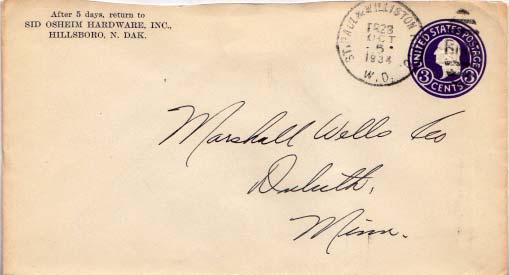 After 5 days, return to
SID OSHEIM HARDWARE, INC.,
HILLSBORO, N. DAK.
ST. PAUL & WILLISTON
OCT
5
1934
W.D.
UNITED STATES POSTAGE
3 CENTS 3
Marshall Wells Co
Duluth,
Minn.